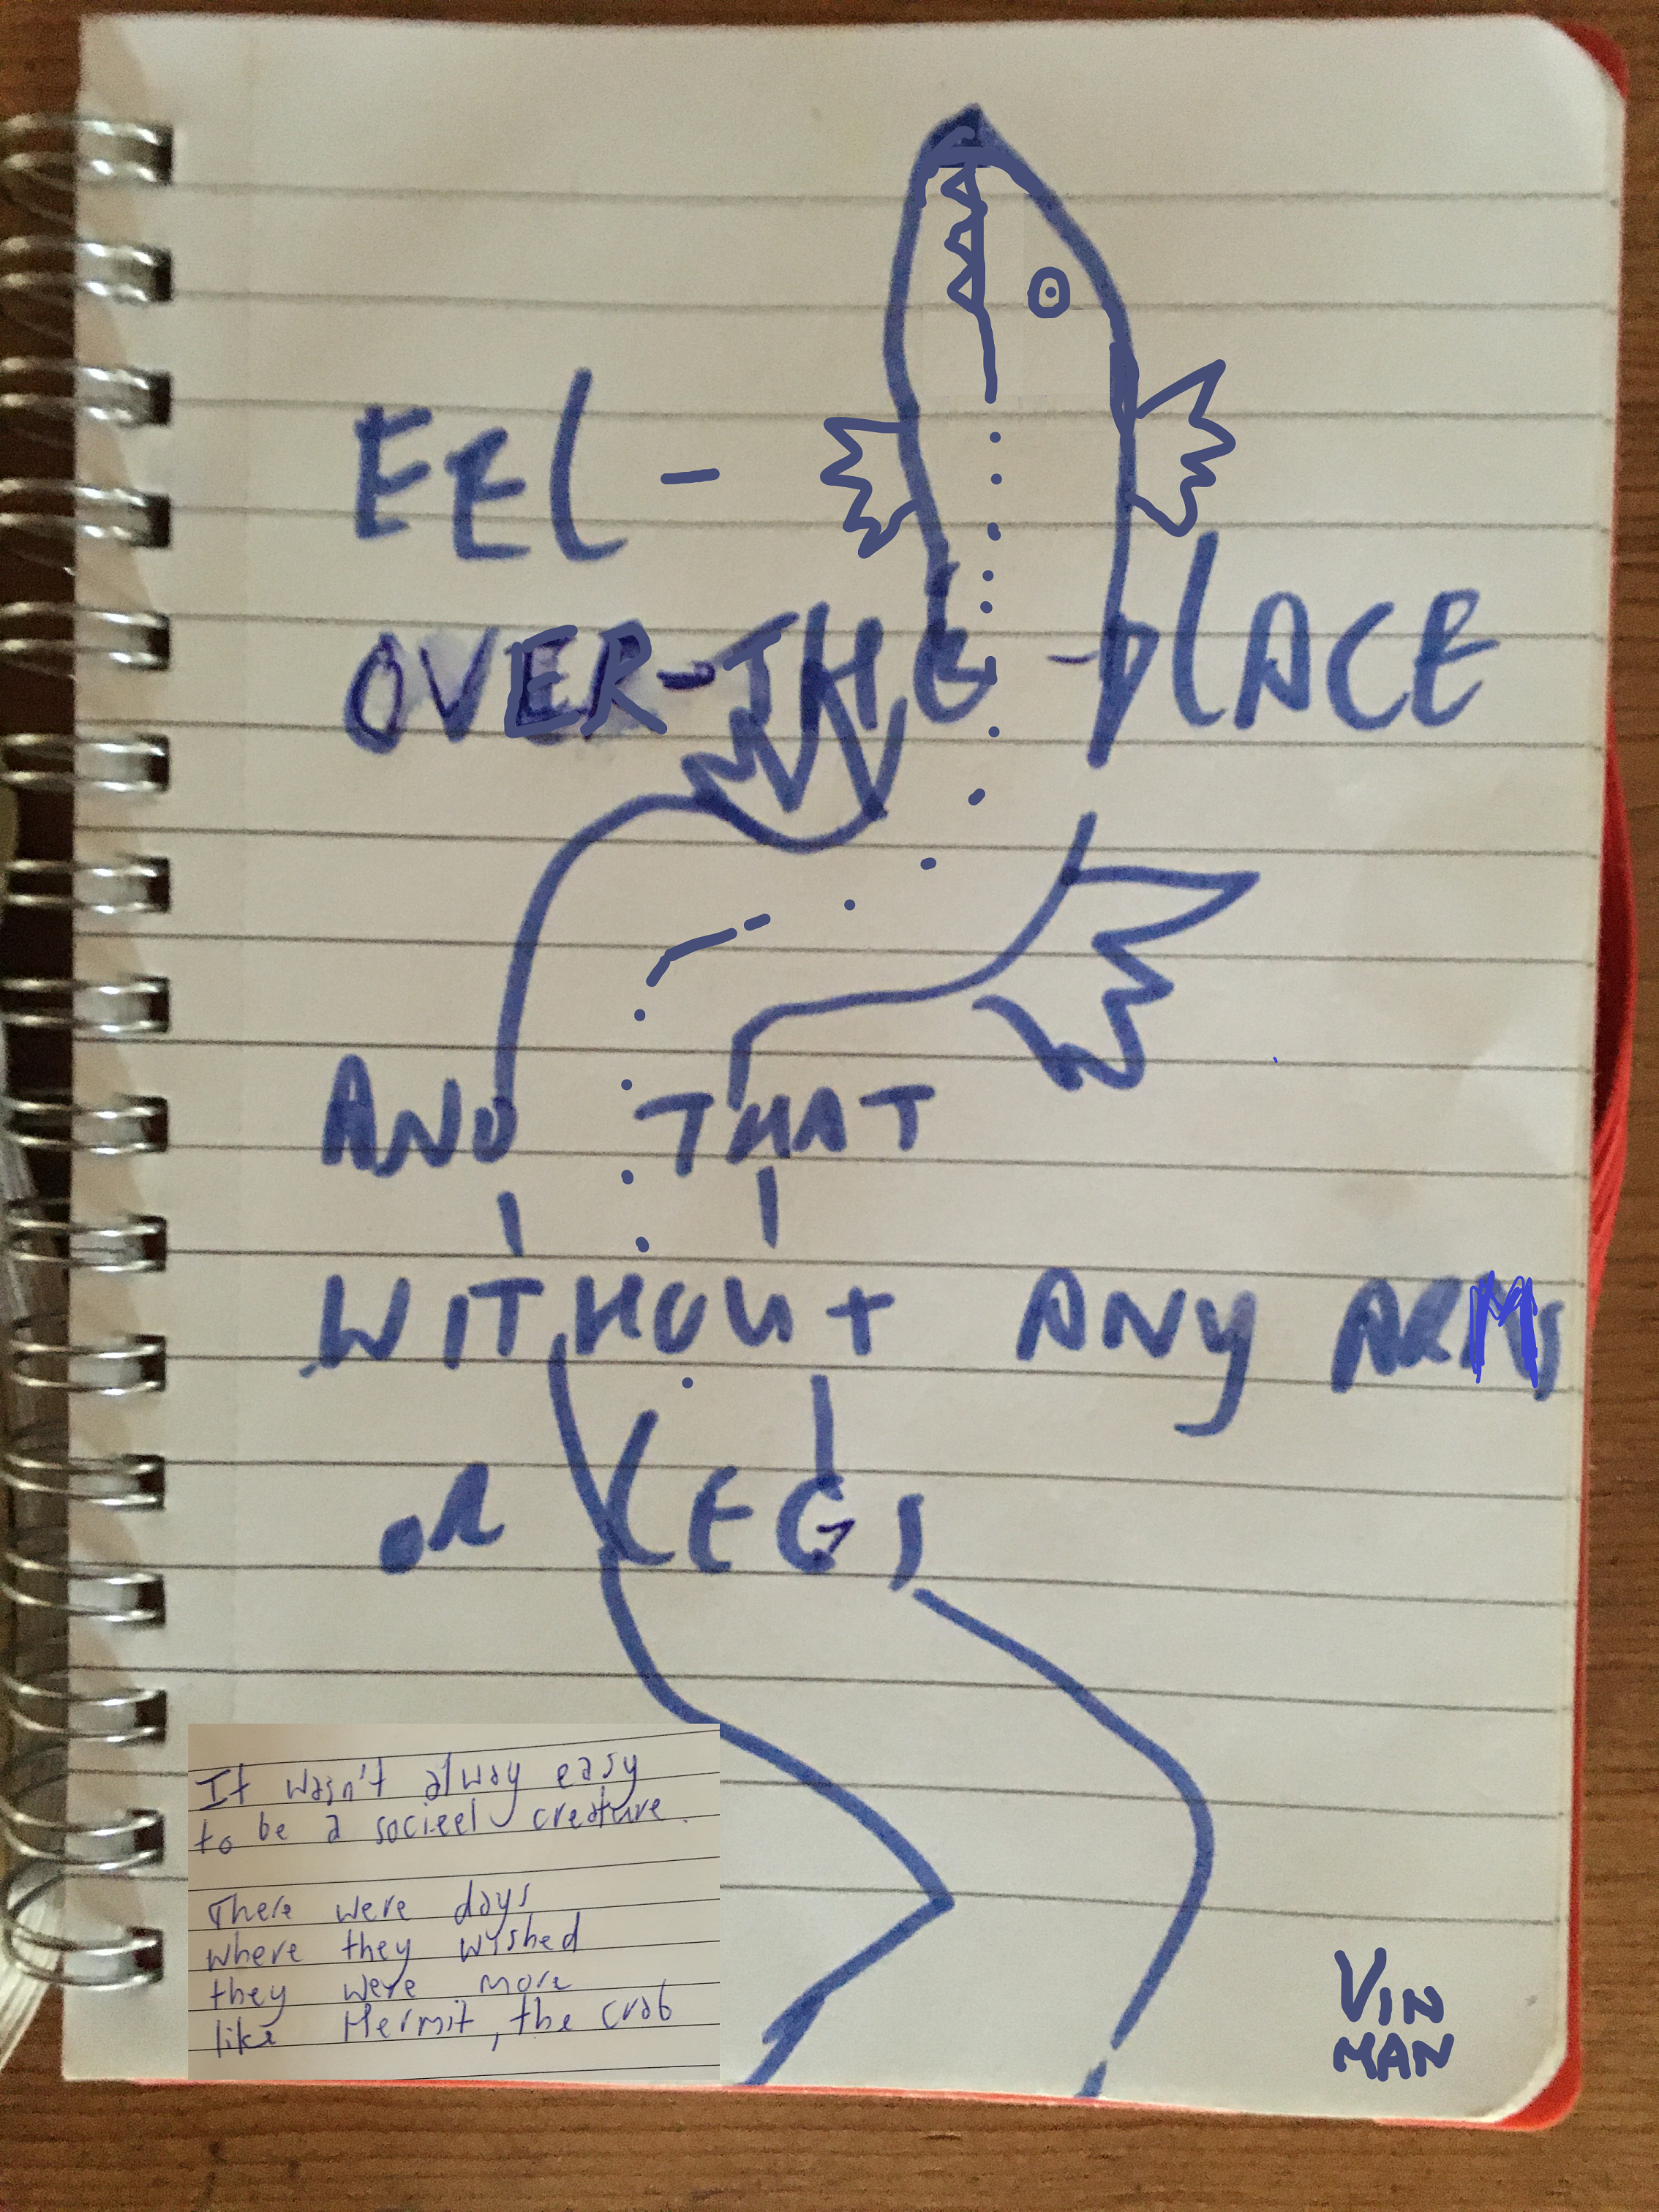 EEL -
OVER-THE-PLACE
AND THAT
WITHOUT ANY ARMS
OR LEGS
It wasn't alway easy
to be a socieel creature.
There were days
where they wished
they were more
like Hermit, the crab
VIN
MAN